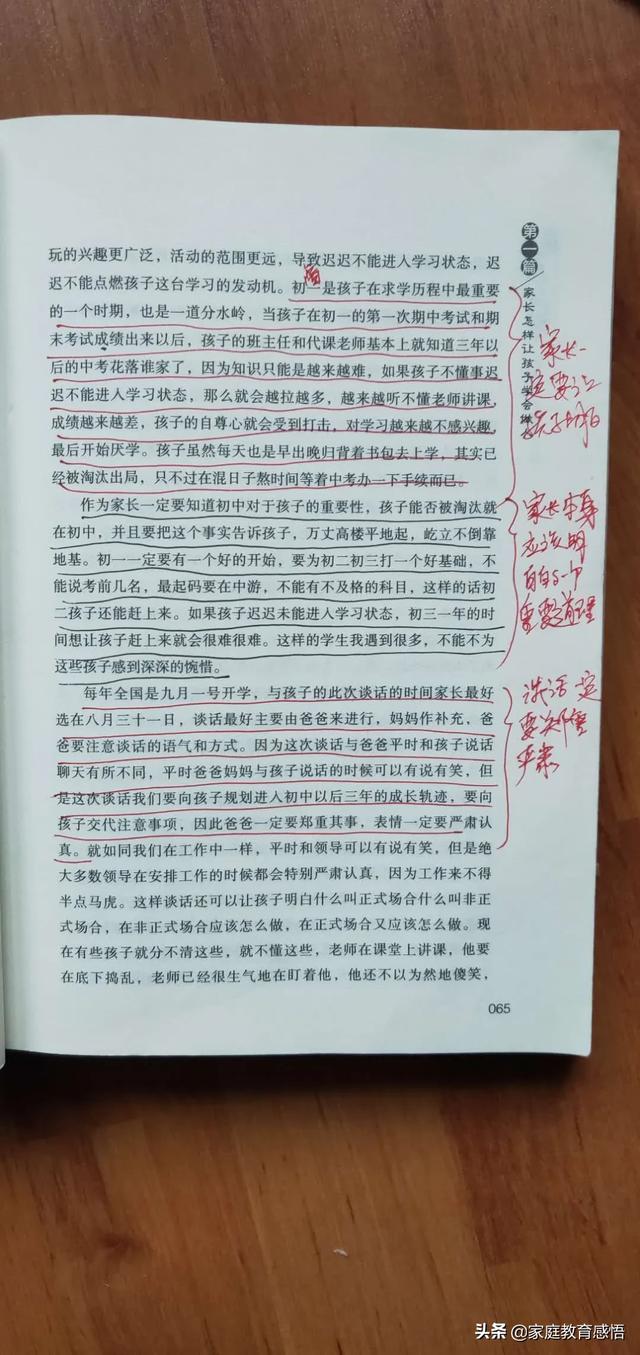 第一篇
家长怎样让孩子学会做
玩的兴趣更广泛，活动的范围更远，导致迟迟不能进入学习状态，迟
迟不能点燃孩子这台学习的发动机。初一是孩子在求学历程中最重要
的一个时期，也是一道分水岭，当孩子在初一的第一次期中考试和期
末考试成绩出来以后，孩子的班主任和代课老师基本上就知道三年以
后的中考花落谁家了，因为知识只能是越来越难，如果孩子不懂事迟
迟不能进入学习状态，那么就会越拉越多，越来越听不懂老师讲课，
成绩越来越差，孩子的自尊心就会受到打击，对学习越来越不感兴趣，
最后开始厌学。孩子虽然每天也是早出晚归背着书包去上学，其实已
经被淘汰出局，只不过在混日子熬时间等着中考办一下手续而已。
作为家长一定要知道初中对于孩子的重要性，孩子能否被淘汰就
在初中，并且要把这个事实告诉孩子，万丈高楼平地起，屹立不倒靠
地基。初一一定要有一个好的开始，要为初二初三打一个好基础，不
能说考前几名，最起码要在中游，不能有不及格的科目，这样的话初
二孩子还能赶上来。如果孩子迟迟未能进入学习状态，初三一年的时
间想让孩子赶上来就会很难很难。这样的学生我遇到很多，不能不为
这些孩子感到深深的惋惜。
每年全国是九月一号开学，与孩子的此次谈话的时间家长最好
选在八月三十一日，谈话最好主要由爸爸来进行，妈妈作补充，爸
爸要注意谈话的语气和方式。因为这次谈话与爸爸平时和孩子说话
聊天有所不同，平时爸爸妈妈与孩子说话的时候可以有说有笑，但
是这次谈话我们要向孩子规划进入初中以后三年的成长轨迹，要向
孩子交代注意事项，因此爸爸一定要郑重其事，表情一定要严肃认
真。就如同我们在工作中一样，平时和领导可以有说有笑，但是绝
大多数领导在安排工作的时候都会特别严肃认真，因为工作来不得
半点马虎。这样谈话还可以让孩子明白什么叫正式场合什么叫非正
式场合，在非正式场合应该怎么做，在正式场合又应该怎么做。现
在有些孩子就分不清这些，就不懂这些，老师在课堂上讲课，他要
在底下捣乱，老师已经很生气地在盯着他，他还不以为然地傻笑，
家长一
定要让
孩子明白
家长本身
应该明
白的一个
重要道理
谈话一定
要郑重
严肃
065
头条 @家庭教育感悟